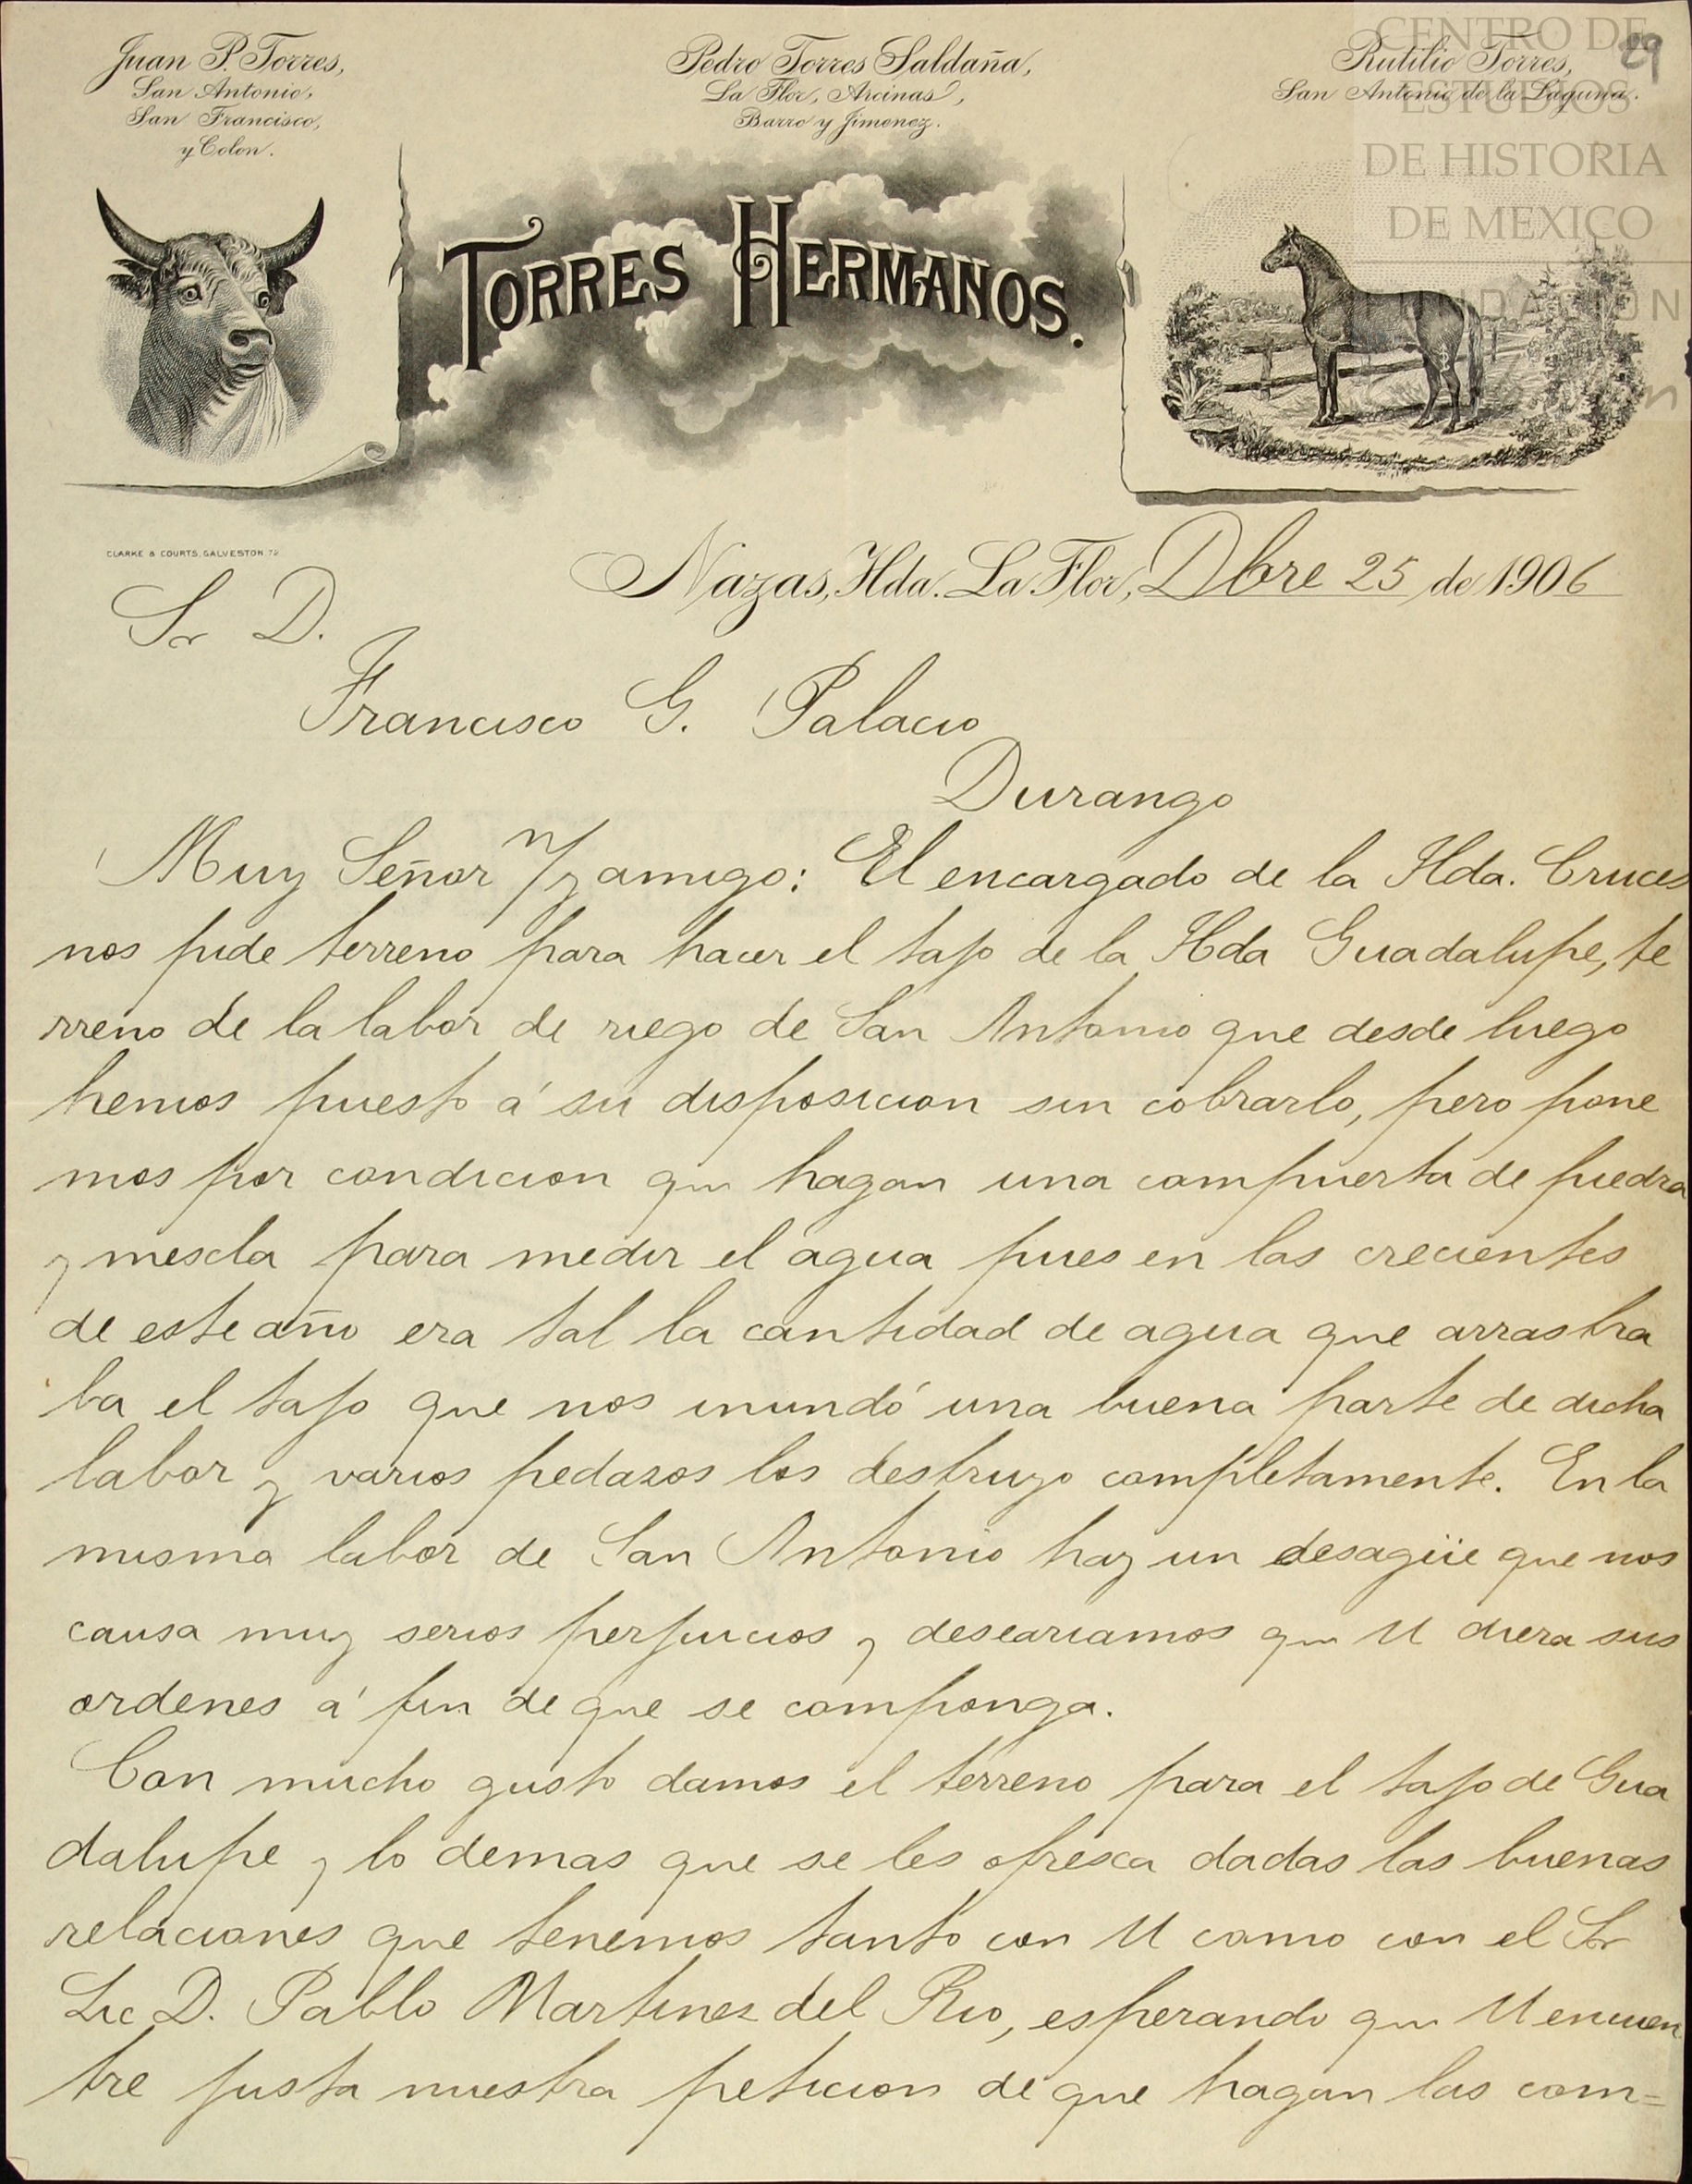 Juan P. Torres,
San Antonio,
San Francisco,
y Colon.
Pedro Torres Saldaña,
La Flor, Arcinas,
Barro y Jimenez.
Rutilio Torres,
San Antonio de la Laguna.
29
CENTRO DE
ESTUDIOS
DE HISTORIA
DE MEXICO
FUNDACIÓN
TORRES HERMANOS.
CLARKE & COURTS, GALVESTON
Nazas, Hda. La Flor, Dbre 25 de 1906
Sr D.
Francisco G. Palacio
Durango
Muy Señor n/ y amigo: El encargado de la Hda. Cruces
nos pide terreno para hacer el tajo de la Hda Guadalupe, te
rreno de la labor de riego de San Antonio que desde luego
hemos puesto á su disposicion sin cobrarlo, pero pone
mos por condicion que hagan una compuerta de piedra
y mescla para medir el agua pues en las crecientes
de este año era tal la cantidad de agua que arrastra
ba el tajo que nos inundó una buena parte de dicha
labor y varios pedazos los destruyo completamente. En la
misma labor de San Antonio hay un desagüe que nos
causa muy serios perjucios y deseariamos que U diera sus
ordenes á fin de que se componga.
Con mucho gusto damos el terreno para el tajo de Gua
dalupe y lo demas que se les ofresca dadas las buenas
relaciones que tenemos tanto con U como con el Sr
Lic D. Pablo Martinez del Rio, esperando que U encuen
tre justa nuestra peticion de que hagan las com=